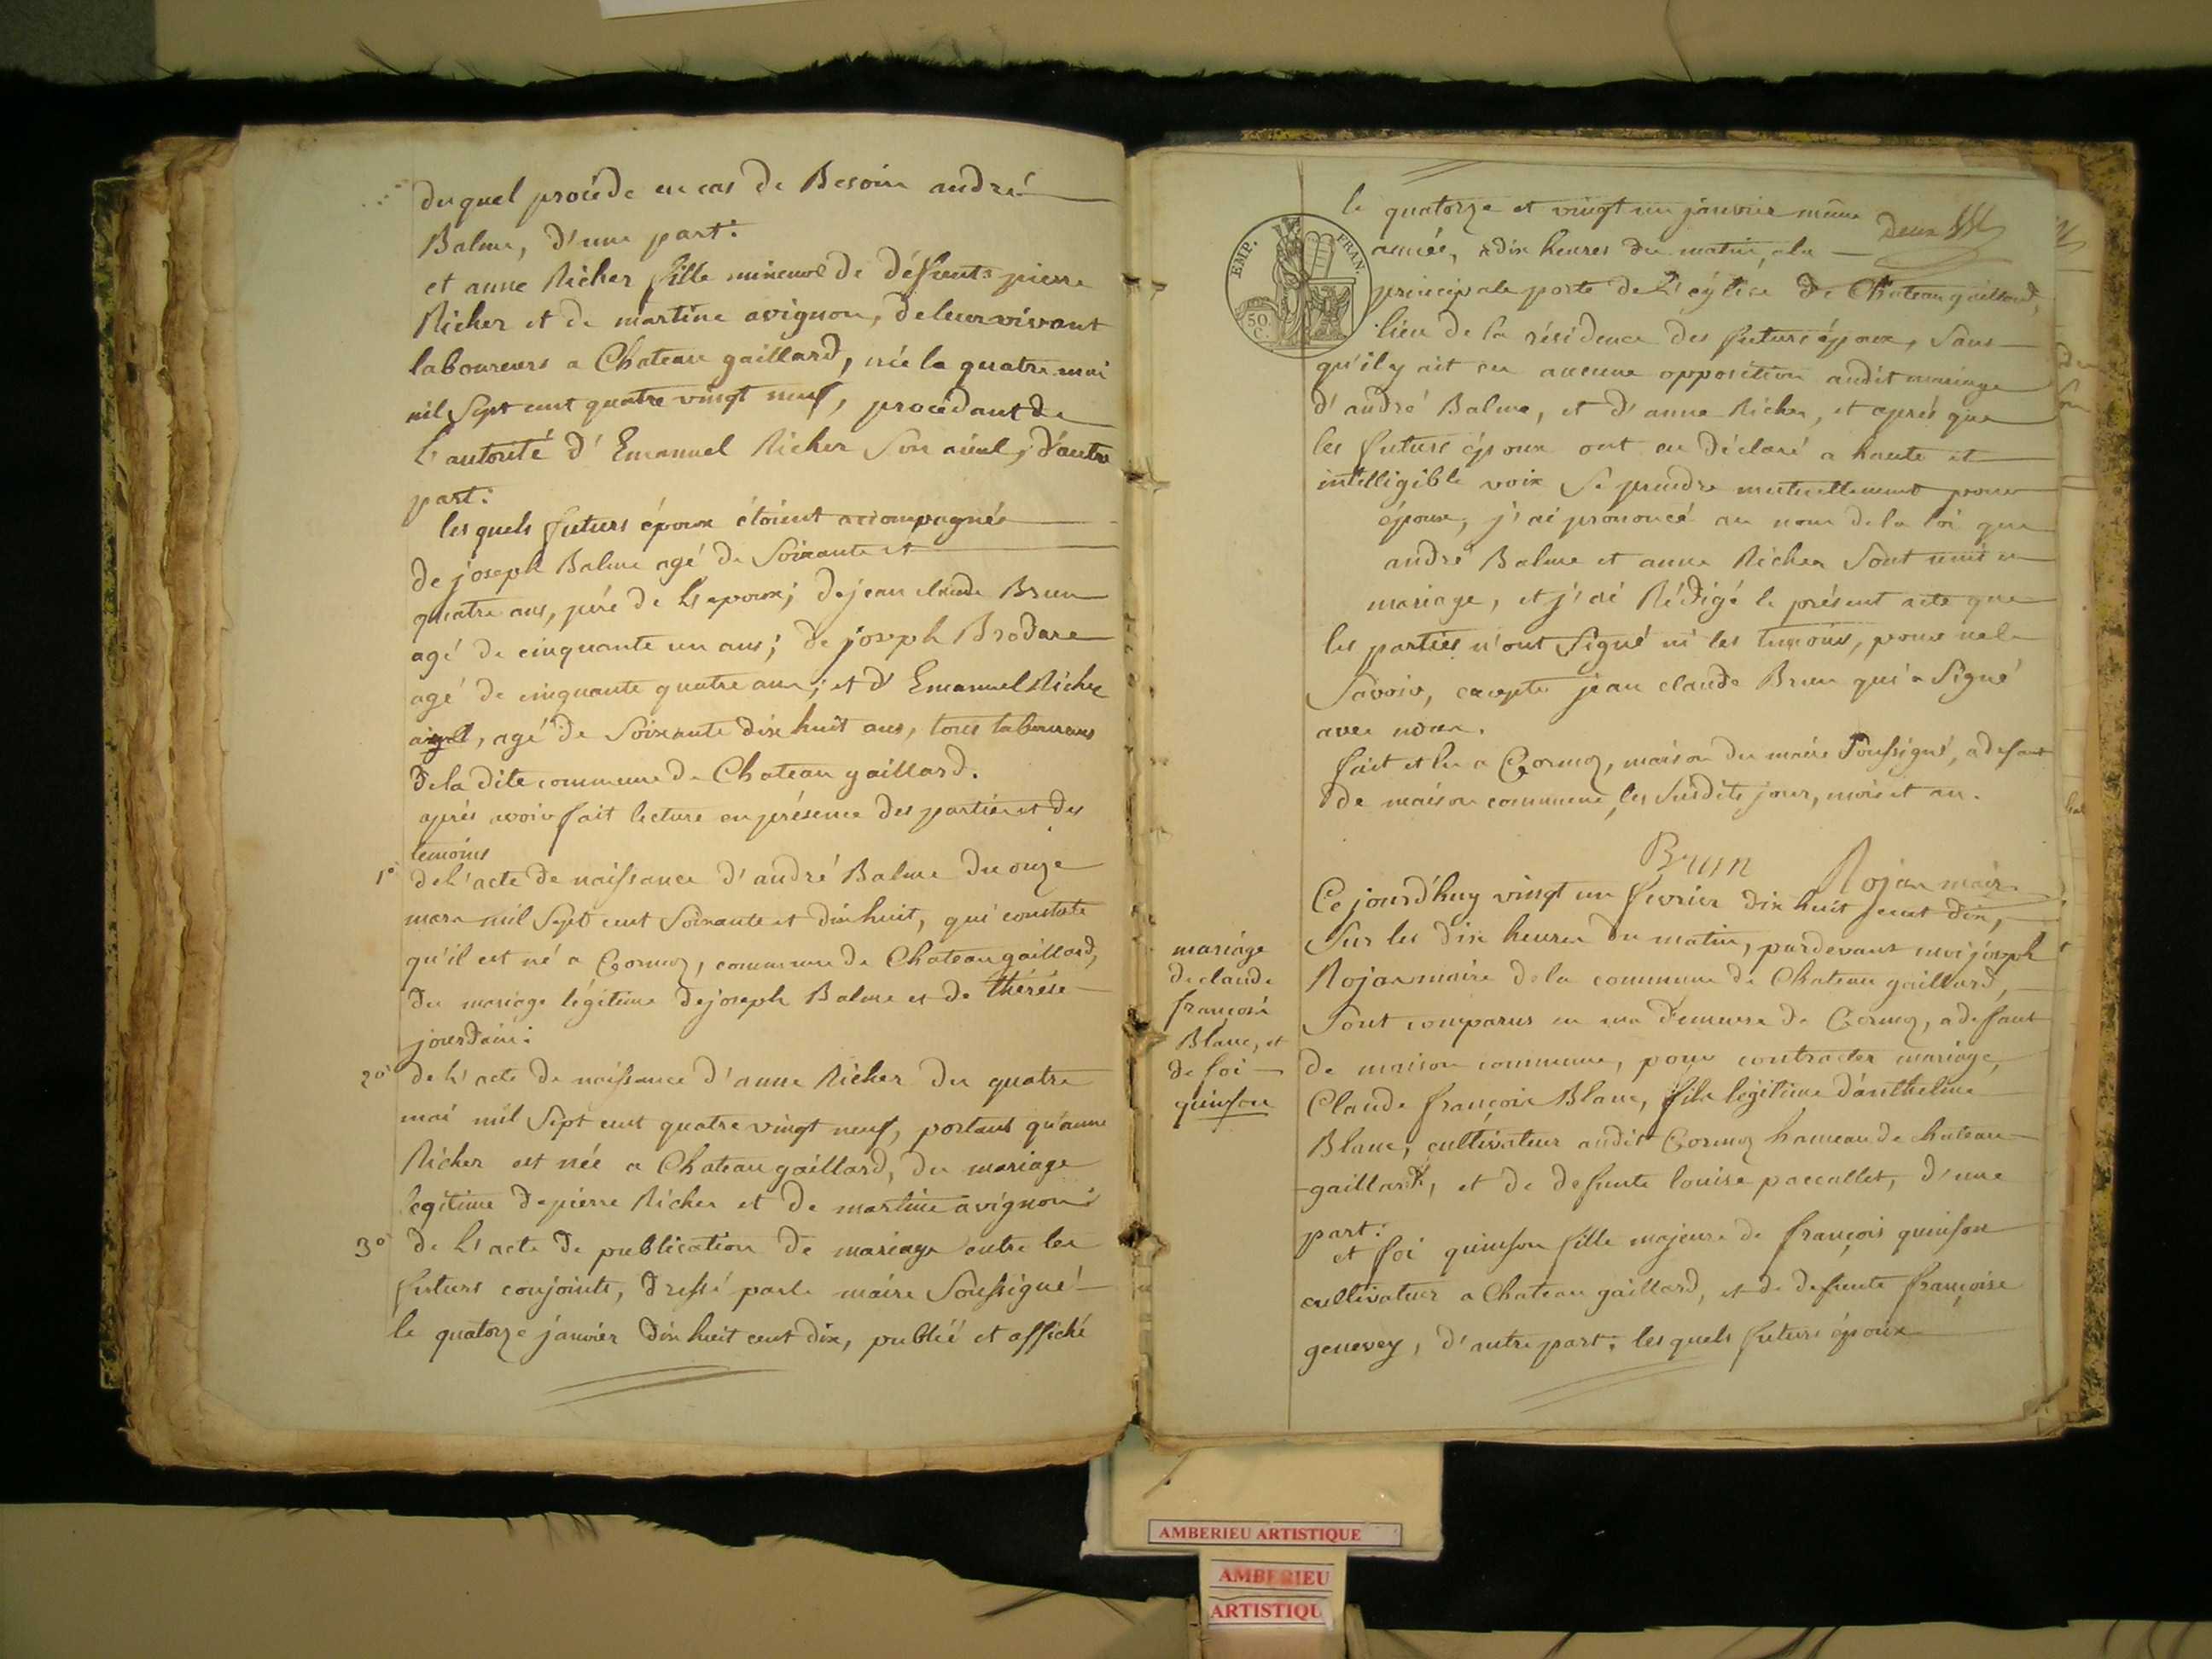 duquel procède en cas de Besoin andré
Balme, d'une part:
et anne Richer fille mineure de défunts pierre
Richer et de martine avignon, de leur vivant
laboureurs a Chateau gaillard, née le quatre mai
mil Sept cent quatre vingt neuf, procédant de
L'autorité d'Emanuel Richer Son aieul, d'autre
part:
les quels futurs époux étoient accompagnés
de joseph Balme agé de Soixante et
quatre ans, père de L'epoux; de jean claude Brun
agé de cinquante un ans; de joseph Brodare
agé de cinquante quatre ans; et d'Emanuel Richer
agé de Soixante dix huit ans, tous laboureurs
de la dite commune de Chateau gaillard.
après avoir fait lecture en présence des parties et des
témoins
1° de L'acte de naissance d'andré Balme du onze
mars mil Sept cent Soixante et dix huit, qui constate
qu'il est né a Cormoz, commune de Chateau gaillard,
du mariage légitime de joseph Balme et de thérése
jourdain:
2° de L'acte de naissance d'anne Richer du quatre
mai mil Sept cent quatre vingt neuf, portant qu'anne
Richer est née a Chateau gaillard, du mariage
legitime de pierre Richer et de martine avignon:
3° de L'acte de publication de mariage entre les
futurs conjoints, dressé par le maire Soussigné
le quatorze janvier dix huit cent dix, publié et affiché
le quatorze et vingt un janvier même
deux
EMP. FRAN.
50 C.
année, a dix heures du matin, a la
principale porte de L'églisé de Chateau gaillard,
lieu de la résidence des futurs époux, Sans
qu'il y ait eu aucune opposition audit mariage
d'andré Balme, et d'anne Richer, et après que
les futurs époux ont eu déclaré a haute et
intelligible voix Se prendre mutuellement pour
époux, j'ai prononcé au nom de la loi que
andré Balme et anne Richer Sont unis en
mariage, et j'ai Rédigé le présent acte que
les parties n'ont Signé ni les temoins, pour ne le
Savoir, excepté jean claude Brun qui a Signé
avec nous.
fait et lu a Cormoz, maison du maire Soussigné, a defaut
de maison commune, les Susdits jour, mois et an.
Brun Rojon maire
mariage
de claude
françois
Blanc, et
de foi
quinson
Ce jourd'huy vingt un fevrier dix huit cent dix,
Sur les dix heures du matin, pardevant moi joseph
Rojon maire de la commune de Chateau gaillard,
Sont comparus en ma demeure de Cormoz, a defaut
de maison commune, pour contracter mariage,
Claude françois Blanc, fils légitime d'anthelme
Blanc, cultivateur audit Cormoz hameau de chateau
gaillard, et de defunte louise paccallet, d'une
part:
et foi quinson fille majeure de françois quinson
cultivateur a Chateau gaillard, et de defunte françoise
genevey, d'autre part: les quels futurs époux
AMBERIEU ARTISTIQUE
AMBERIEU
ARTISTIQU